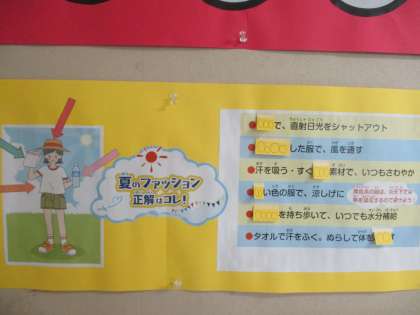 夏のファッション
正解はコレ!
で、直射日光をシャットアウト
した服で、風を通す
汗を吸う・すぐ 素材で、いつもさわやか
い色の服で、涼しげに
を持ち歩いて、いつでも水分補給
タオルで汗をふく。ぬらして体 す